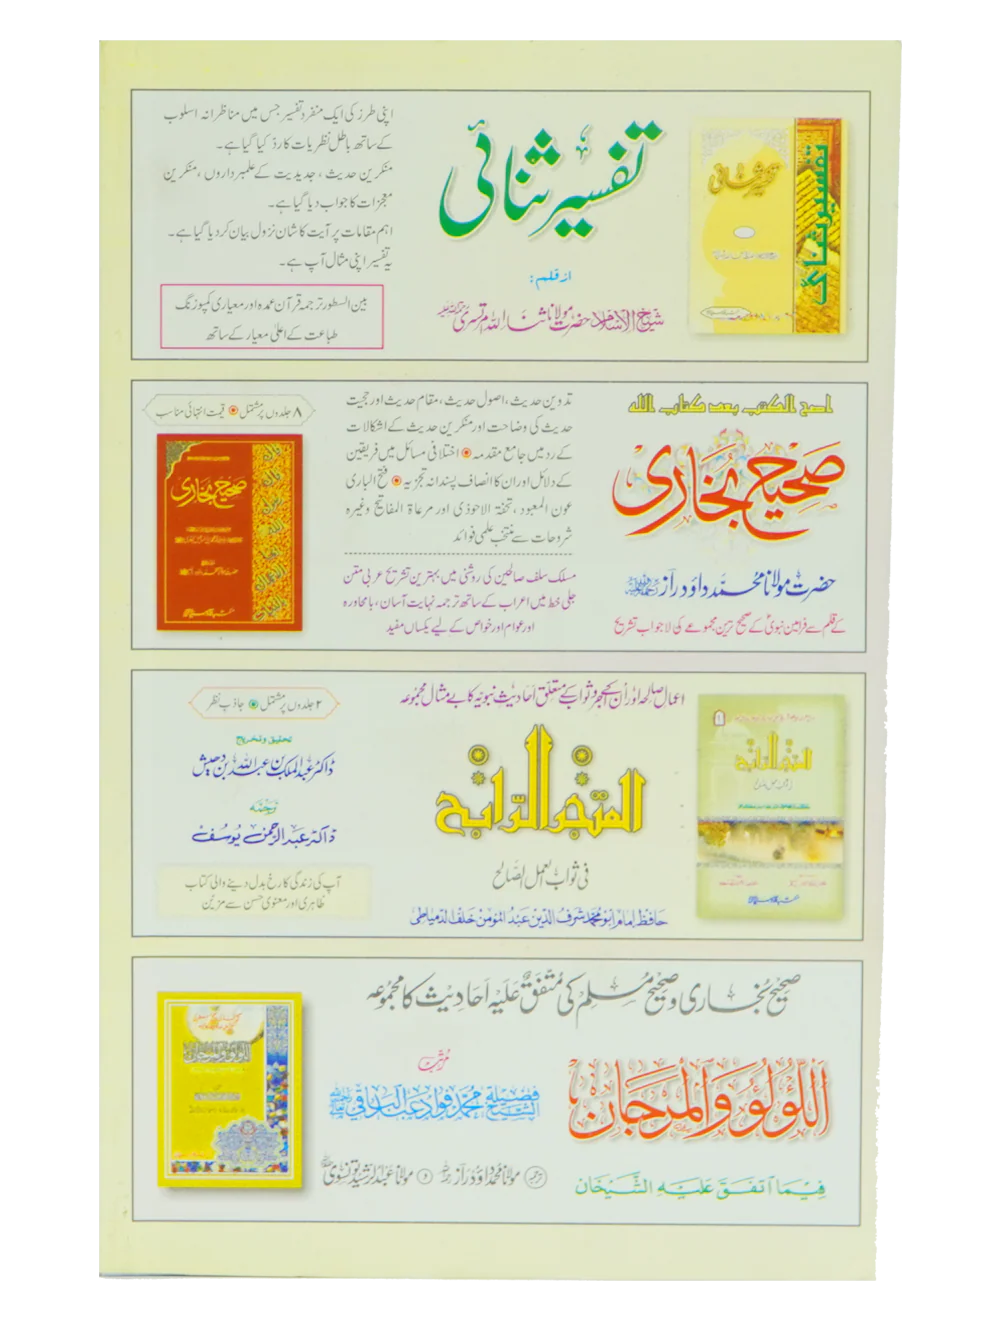 تفسیر ثنائی
از قلم:
شیخ الاسلام حضرت مولانا ثناء اللہ امرتسری
اپنی طرز کی ایک منفرد تفسیر جس میں مناظرانہ اسلوب
کے ساتھ باطل نظریات کا رد کیا گیا ہے۔
منکرین حدیث، جدیدیت کے علمبرداروں، منکرین
معجزات کا جواب دیا گیا ہے۔
اہم مقامات پر آیت کا شان نزول بیان کر دیا گیا ہے۔
یہ تفسیر اپنی مثال آپ ہے۔
بین السطور ترجمہ قرآن عمدہ اور معیاری کمپوزنگ
طباعت کے اعلیٰ معیار کے ساتھ
تفسیر ثنائی
اصح الکتب بعد کتاب اللہ
صحیح بخاری
حضرت مولانا محمد داؤد راز
کے قلم سے فرامین نبوی کے صحیح ترین مجموعے کی لاجواب تشریح
تدوین حدیث، اصول حدیث، مقام حدیث اور حجیت
حدیث کی وضاحت اور منکرین حدیث کے اشکالات
کے رد میں جامع مقدمہ اختلافی مسائل میں فریقین
کے دلائل اور ان کا انصاف پسندانہ تجزیہ فتح الباری
عون المعبود، تحفۃ الاحوذی اور مرعاۃ المفاتیح وغیرہ
شروحات سے منتخب علمی فوائد
مسلک سلف صالحین کی روشنی میں بہترین تشریح عربی متن
جلی خط میں اعراب کے ساتھ ترجمہ نہایت آسان، بامحاورہ
اور عوام اور خواص کے لیے یکساں مفید
۸ جلدوں پر مشتمل قیمت انتہائی مناسب
صحیح بخاری
اعمال صالحہ اور ان کے اجر و ثواب کے متعلق احادیث نبویہ کا بے مثال مجموعہ
المتجر الرابح
فی ثواب العمل الصالح
حافظ امام ابو محمد شرف الدین عبد المؤمن خلف الدمیاطی
۲ جلدوں پر مشتمل جاذب نظر
تحقیق و تخریج
ڈاکٹر عبد الملک بن عبد اللہ بن دھیش
ترجمہ
ڈاکٹر عبد الرحمن یوسف
آپ کی زندگی کا رخ بدل دینے والی کتاب
ظاہری اور معنوی حسن سے مزین
المتجر الرابح
صحیح بخاری و صحیح مسلم کی متفق علیہ احادیث کا مجموعہ
اللؤلؤ والمرجان
فیما اتفق علیہ الشیخان
مرتب
فضیلۃ الشیخ محمد فواد عبد الباقی
ترجمہ مولانا محمد داؤد راز و مولانا عبد الرشید تونسوی
اللؤلؤ والمرجان